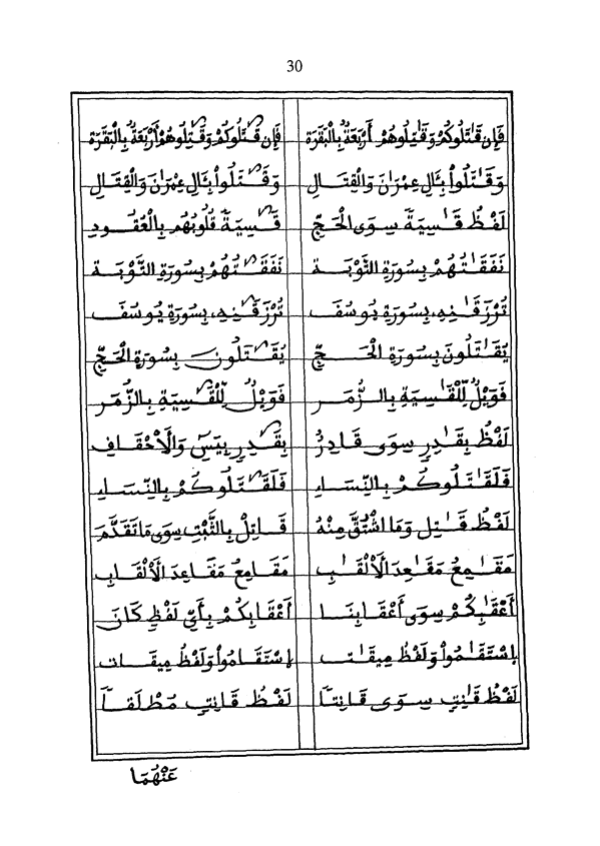 30
فَإِن قَٰتَلُوكُمْ وَقَٰتِلُوهُمْ أَرْبَعَةٌ بِالْبَقَرَة فَإِن قَٰتَلُوكُمْ وَقَٰتِلُوهُمْ أَرْبَعَةٌ بِالْبَقَرَة
وَقَٰتَلُواْ بِـَٔالِ عِمْرَٰنَ وَالْقِتَالِ وَقَٰتَلُواْ بِـَٔالِ عِمْرَٰنَ وَالْقِتَالِ
لَفْظُ قَٰسِيَةً سِوَى الْحَجِّ قَٰسِيَةً قُلُوبُهُم بِالْعُقُودِ
نَفَقَٰتُهُمْ بِسُورَةِ التَّوْبَةِ نَفَقَٰتُهُمْ بِسُورَةِ التَّوْبَةِ
تُرْزَقَٰنِهِ بِسُورَةِ يُوسُفَ تُرْزَقَٰنِهِ بِسُورَةِ يُوسُفَ
يُقَٰتَلُونَ بِسُورَةِ الْحَجِّ يُقَٰتَلُونَ بِسُورَةِ الْحَجِّ
فَوَيْلٌ لِّلْقَٰسِيَةِ بِالزُّمَرِ فَوَيْلٌ لِّلْقَٰسِيَةِ بِالزُّمَرِ
لَفْظُ بِقَٰدِرٍ سِوَى قَادِرُ بِقَٰدِرٍ بِيَسٓ وَالْأَحْقَافِ
فَلَقَٰتَلُوكُمْ بِالنِّسَاءِ فَلَقَٰتَلُوكُمْ بِالنِّسَاءِ
لَفْظُ قَٰئِل وَمَا اشْتُقَّ مِنْهُ قَائِلٌ بِالثَّبْتِ سِوَى مَا تَقَدَّمَ
مَقَٰمِعُ مَقَٰعِدَ الْأَلْقَٰبِ مَقَامِعُ مَقَاعِدَ الْأَلْقَابِ
أَعْقَٰبِكُمْ سِوَى أَعْقَابِنَا أَعْقَابِكُمْ بِأَيِّ لَفْظٍ كَانَ
اِسْتَقَٰمُواْ وَلَفْظُ مِيقَٰت اِسْتَقَامُواْ وَلَفْظُ مِيقَات
لَفْظُ قَٰنِتٍ سِوَى قَانِتًا لَفْظُ قَانِتٍ مُطْلَقًا
عَنْهُمَا